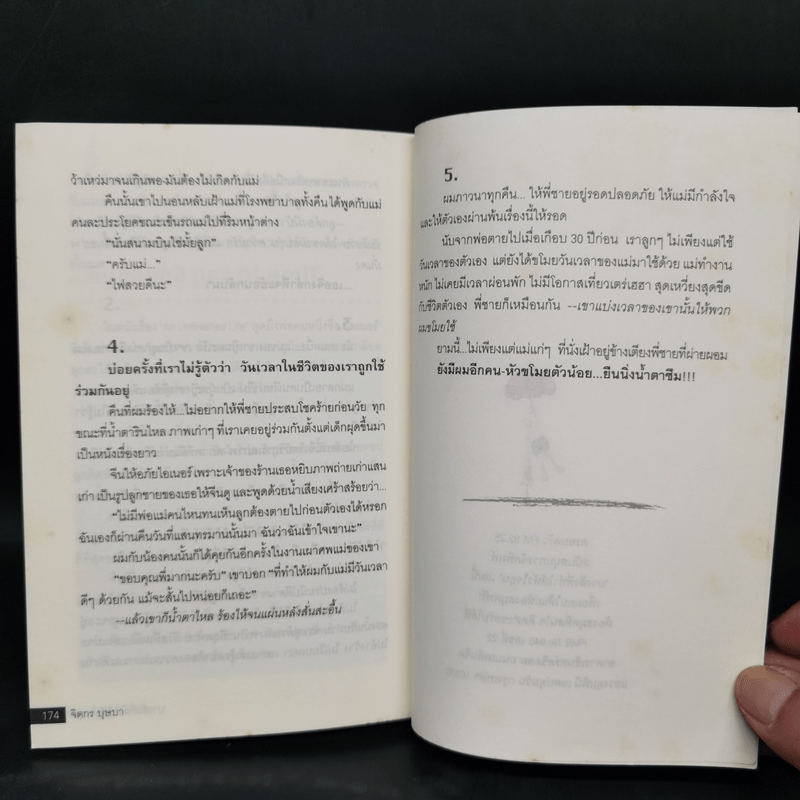 ว้าเหว่มาจนเกินพอ-มันต้องไม่เกิดกับแม่
คืนนั้นเขาไปนอนหลับเฝ้าแม่ที่โรงพยาบาลทั้งคืน ได้พูดกับแม่
คนละประโยคขณะเข็นรถแม่ไปที่ริมหน้าต่าง
“นั่นสนามบินใช่มั้ยลูก”
“ครับแม่...”
“ไฟสวยดีนะ”
4.
บ่อยครั้งที่เราไม่รู้ตัวว่า วันเวลาในชีวิตของเราถูกใช้
ร่วมกันอยู่
คืนที่ผมร้องไห้...ไม่อยากให้พี่ชายประสบโชคร้ายก่อนวัย ทุก
ขณะที่น้ำตารินไหล ภาพเก่าๆ ที่เราเคยอยู่ร่วมกันตั้งแต่เด็กผุดขึ้นมา
เป็นหนังเรื่องยาว
จีนให้อภัยไอเนอร์ เพราะเจ้าของร้านเธอหยิบภาพถ่ายเก่าแสน
เก่า เป็นรูปลูกชายของเธอให้จีนดู และพูดด้วยน้ำเสียงเศร้าสร้อยว่า...
“ไม่มีพ่อแม่คนไหนทนเห็นลูกต้องตายไปก่อนตัวเองได้หรอก
ฉันเองก็ผ่านคืนวันที่แสนทรมานนั้นมา ฉันว่าฉันเข้าใจเขานะ”
ผมกับน้องคนนั้นก็ได้คุยกันอีกครั้งในงานเผาศพแม่ของเขา
“ขอบคุณพี่มากนะครับ” เขาบอก “ที่ทำให้ผมกับแม่มีวันเวลา
ดีๆ ด้วยกัน แม้จะสั้นไปหน่อยก็เถอะ”
--แล้วเขาก็น้ำตาไหล ร้องไห้จนแผ่นหลังสั่นสะอื้น
174 จิตกร บุษบา
5.
ผมภาวนาทุกคืน... ให้พี่ชายอยู่รอดปลอดภัย ให้แม่มีกำลังใจ
และให้ตัวเองผ่านพ้นเรื่องนี้ให้รอด
นับจากพ่อตายไปเมื่อเกือบ 30 ปีก่อน เราลูกๆ ไม่เพียงแต่ใช้
วันเวลาของตัวเอง แต่ยังได้ขโมยวันเวลาของแม่มาใช้ด้วย แม่ทำงาน
หนัก ไม่เคยมีเวลาผ่อนพัก ไม่มีโอกาสเที่ยวเตร่เฮฮา สุดเหวี่ยงสุดขีด
กับชีวิตตัวเอง พี่ชายก็เหมือนกัน --เขาแบ่งเวลาของเขานั้นให้พวก
ผมขโมยใช้
ยามนี้...ไม่เพียงแต่แม่แก่ๆ ที่นั่งเฝ้าอยู่ข้างเตียงพี่ชายที่ผ่ายผอม
ยังมีผมอีกคน-หัวขโมยตัวน้อย...ยืนนิ่งน้ำตาซึม!!!